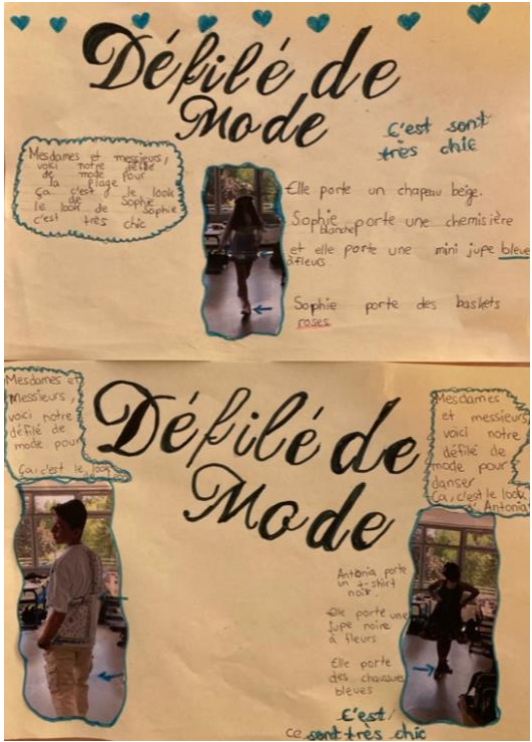 Défilé de
Mode
C'est sont
très chic
Mesdames et messieurs,
voici notre défilé
de mode pour
la plage
Ça, c'est le look
de Sophie
le look de Sophie
c'est très chic
Elle porte un chapeau beige.
Sophie porte une chemisière
blanche
et elle porte une mini jupe bleue
à fleurs
Sophie porte des baskets
roses
Mesdames et
Messieurs,
voici notre
défilé de
mode pour
Ça, c'est le look
Défilé de
Mode
Mesdames
et messieurs
voici notre
défilé de
mode pour
danser
Ça, c'est le look
Antonia
Antonia porte
un t-shirt
noir
Elle porte une
jupe noire
à fleurs
Elle porte
des
bleues
C'est
ce sont très chic